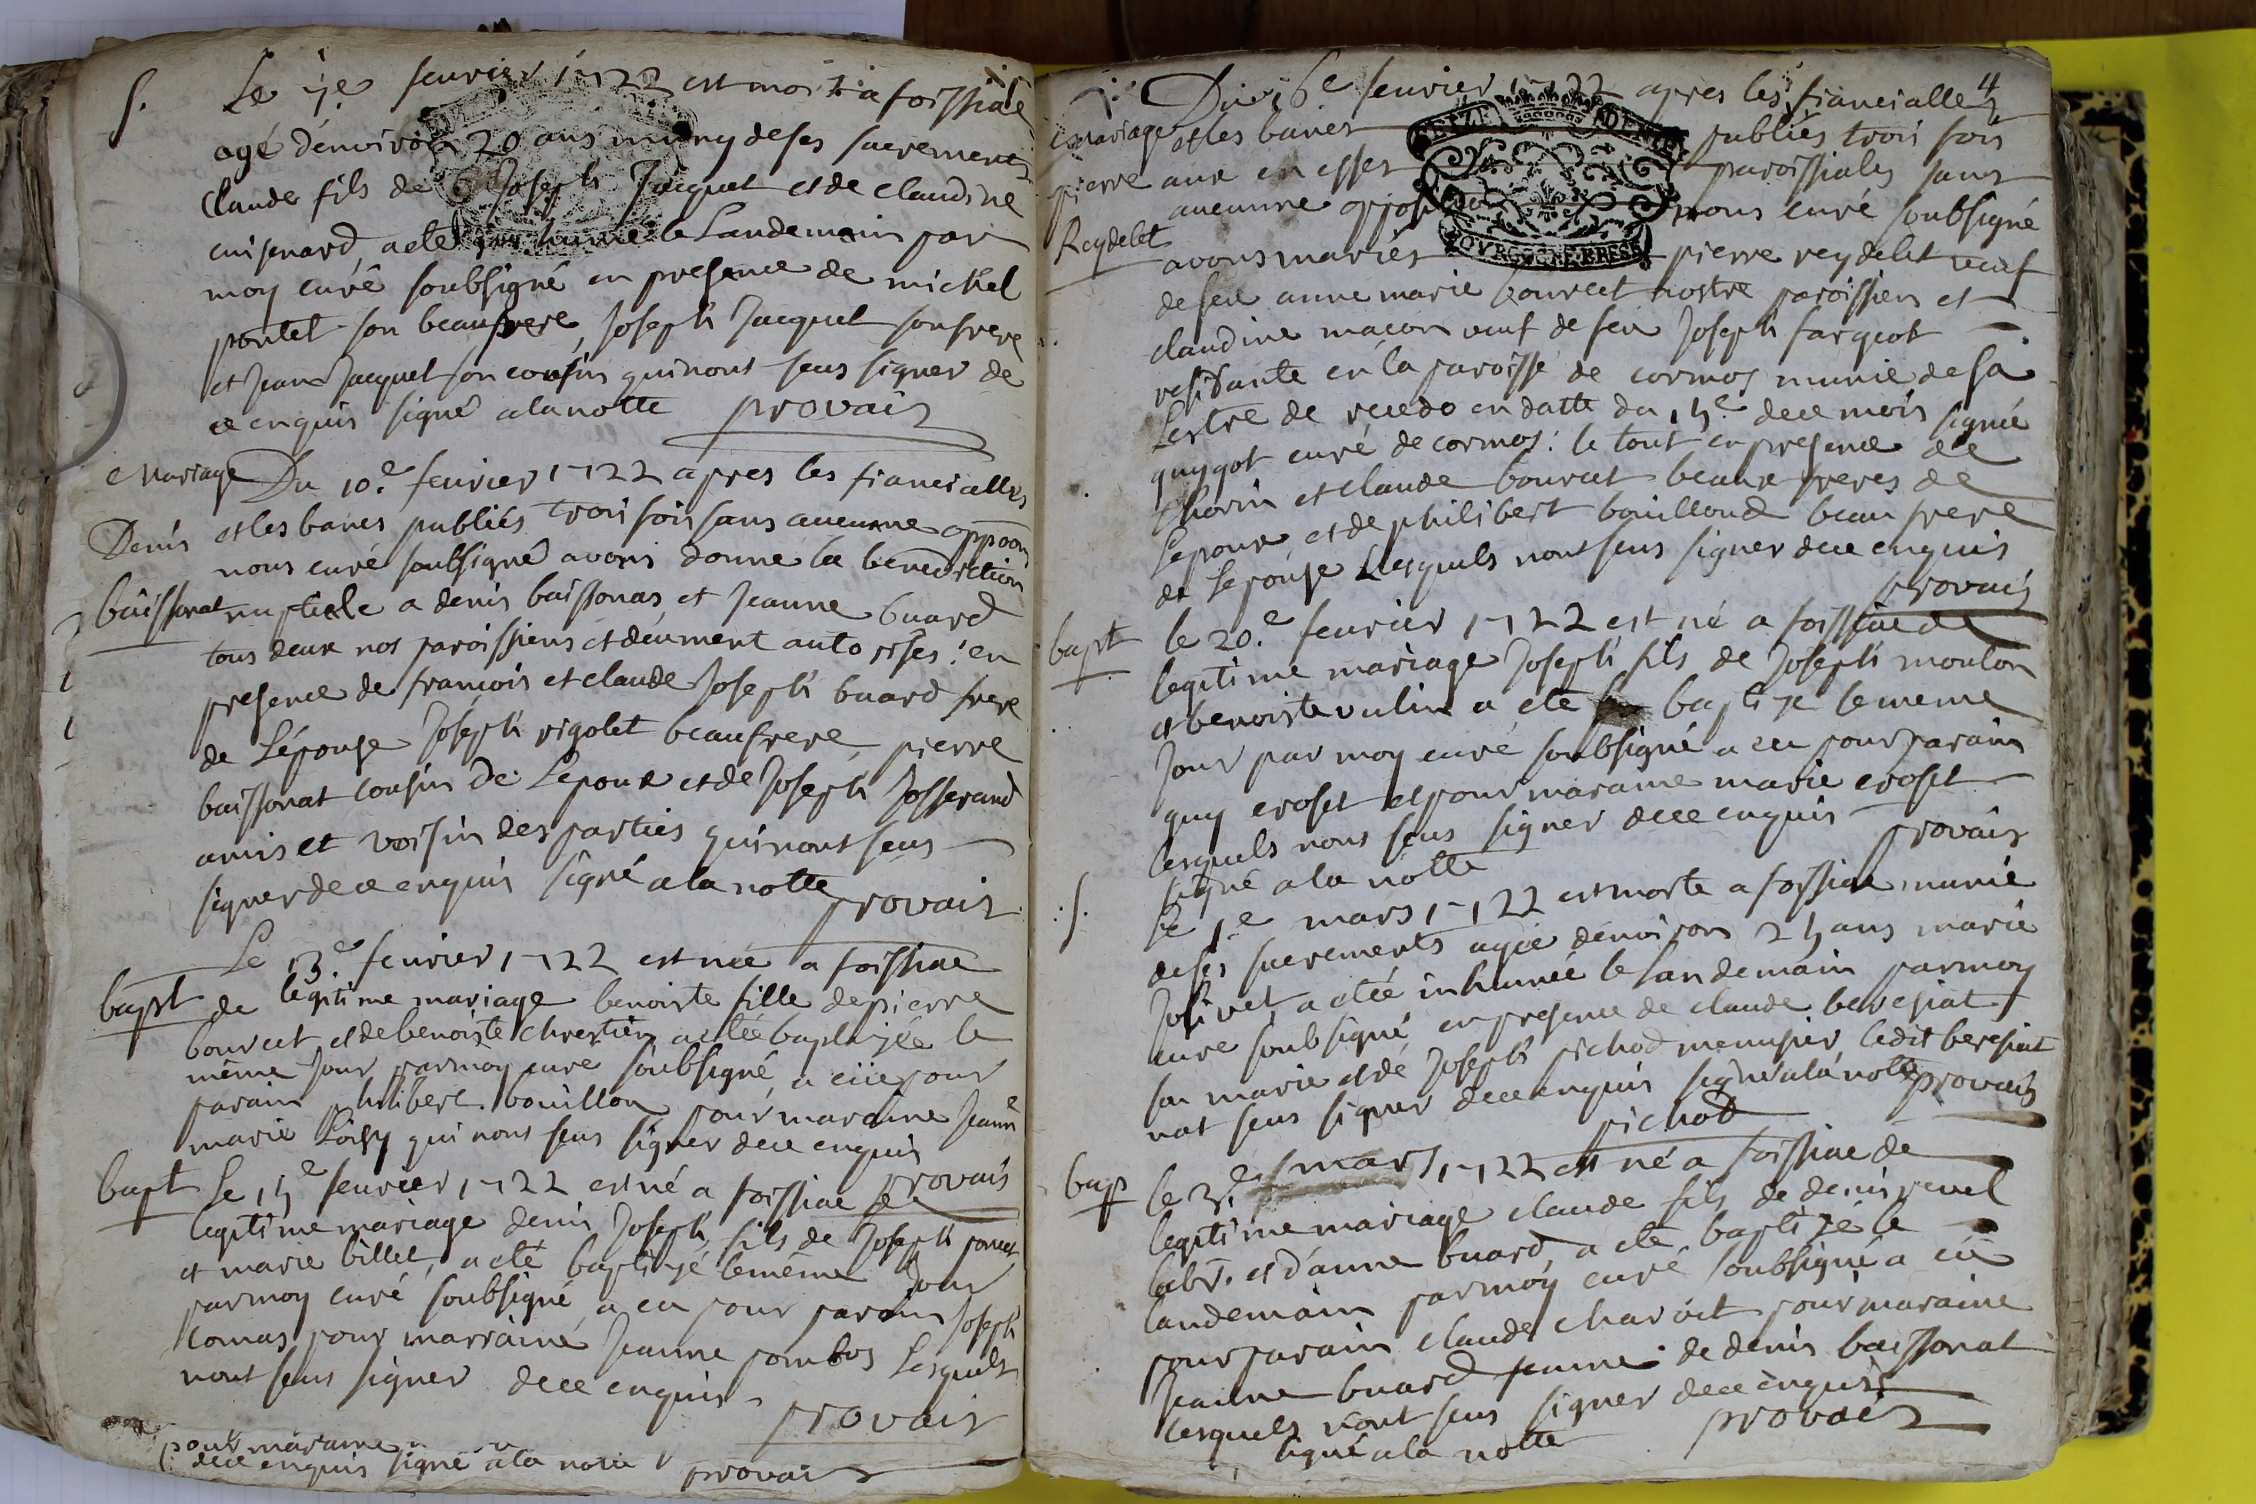 S.
Le 7e feurier 1722 est mort a foissiac
agé denviron 20 ans muny de ses sacrements
Claude fils de Joseph Jacquet et de claudine
cuisenard, a eté inhumé le Landemain par
moy curé soubsigné en presence de michel
pontet son beaufrere, Joseph Jacquet son frere
et Jean Jacquet son cousin qui nont seus signer de
ce enquis signé a la notte provais
Mariage Du 10.e feurier 1722 apres les fiancialles
Denis et les bancs publiés trois fois sans aucunne oppoõn
nous curé soubsigné avons donne la benediction
baissonat nuptiale a denis baissonas et Jeanne buard
tous deux nos paroissiens et deument autorisés: en
presence de francois et claude Joseph buard frere
de Lépouse Joseph rigolet beaufrere, pierre
baissonat cousin de Lepoux et de Joseph Josserand
amis et voisin des parties qui nont seus
signer de ce enquis signé a la notte provais
Le 13.e feurier 1722 est née a foissiac
bapt de legitime mariage benoiste fille de pierre
bourcet et de benoiste chrestien a etée baptizée le
même Jour par moy curé soubsigné, a eüe pour
parain philibert bouillon pour maraine Jeanne
marie Loisy qui nont seus signer de ce enquis
provais
bapt Le 15e feurier 1722 est né a foissiac de
legitime mariage denis Joseph, fils de Joseph poncet
et marie billet, a eté baptizé le même Jour
par moy curé soubsigné a eu pour parain Joseph
comas pour marraine Jeanne pombos Lesquels
nont seus signer de ce enquis
provais
pour maraine
de ce enquis signé a la notte provais
4
Du 16e feurier 1722 apres les fiancialles
Mariage et les bancs publiés trois fois
pierre aux en esses paroissiales sans
aucunne oppos nous curé soubsigné
Reydelet avons mariés pierre reydelet veuf
SEIZE DENIE
BOVRGOGNE.BRESSE
de feu anne marie bourcet nostre paroissien et
claudine macon veuf de feu Joseph fargeot
residante en la paroisse de cormos munie de sa
Lestre de recedo en datte du 15e de ce mois signée
guygot curé de cormos: le tout en presence de
thorin et claude bourcet beaux freres de
Lepoux et de philibert bouilloud beau frere
de Lepouse Lesquels nont seus signer de ce enquis
provais
bapt le 20.e feurier 1722 est né a foissiac de
legitime mariage Joseph fils de Joseph moulon
et benoiste vulin a eté baptizé le meme
Jour par moy curé soubsigné a eu pour parain
guy croset et pour maraine marie croset
lesquels nont seus signer de ce enquis
signé a la notte provais
S. Le 1.e mars 1722 est morte a foissiac munie
de ses sacrements agée denviron 25 ans marie
Jolivet, a etée inhumée le Landemain par moy
curé soubsigné en presence de claude beresiat
son marie et de Joseph pichod menusier ledit beresiat
nat seus signer de ce enquis signé a la notte provais
pichod
bap le 3.e mars 1722 est né a foissiac de
legitime mariage claude fils de denis revel
labr. et d'anne buard a eté baptizé le
landemain par moy curé soubsigné a eü
pour parain claude charvet pour maraine
Jeanne buard femme de denis baissonat
lesquels nont seus signer de ce enquis
signé a la notte provais